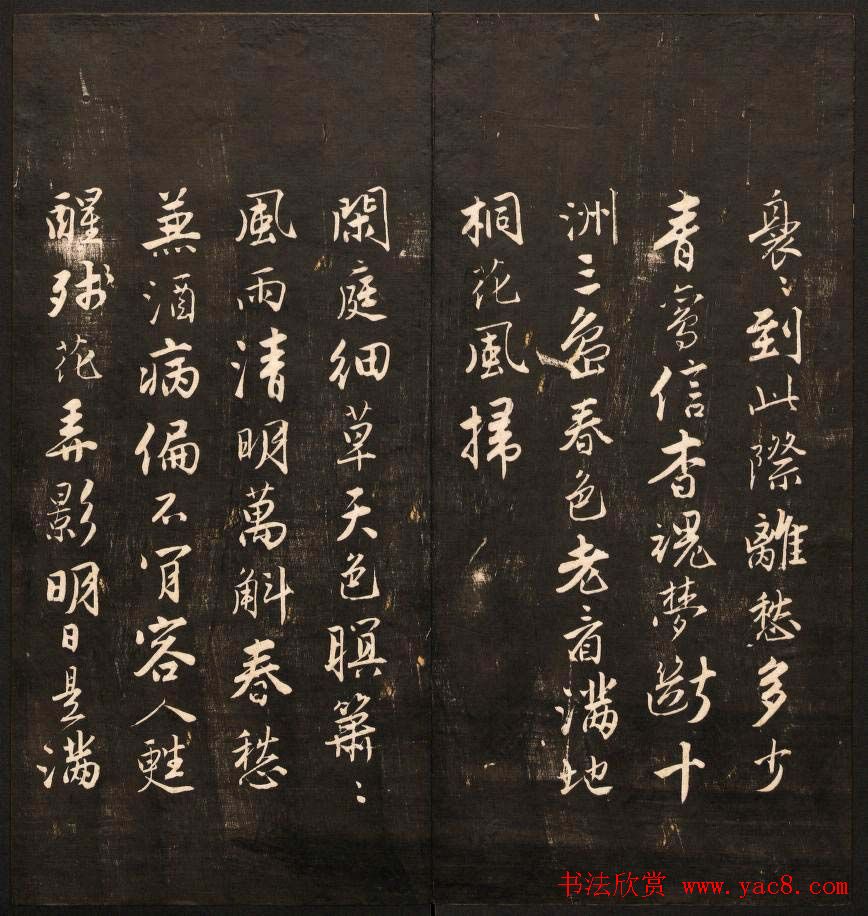 裊〻到此際離愁多少
青鸞信杳魂夢斷十
洲三島春色老音滿地
桐花風掃
閑庭細草天色暝簫〻
風雨清明萬斛春愁
兼酒病偏不肎容人甦
醒殘花弄影明日是滿
书法欣赏 www.yac8.com